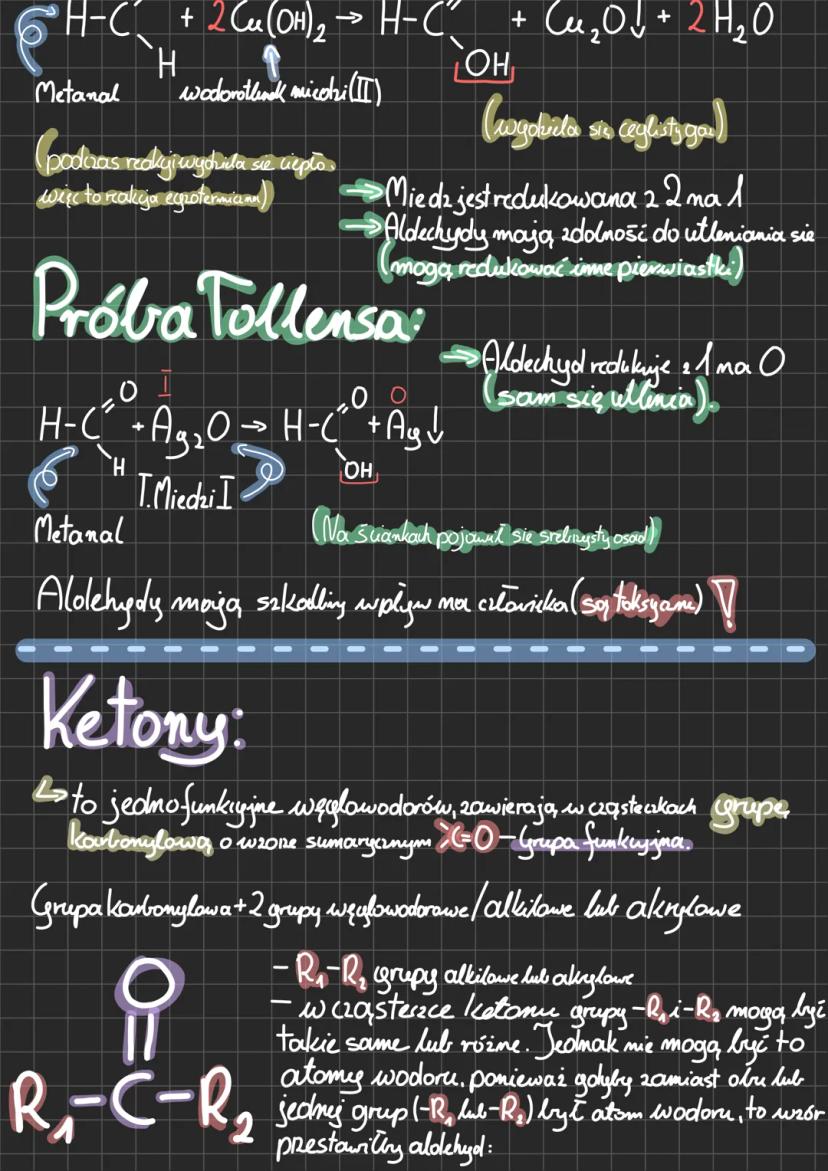 H-C + 2Cu(OH)₂ → H-C + Cu₂O↓ + 2H₂O
H
OH
Metanal wodorotlenek miedzi (II)
(wydziela się ceglisty gaz)
(podczas reakcji wydziela się ciepło,
więc to reakcja egzotermiczna)
⇒ Miedź jest redukowana z 2 na 1
⇒ Aldechydy mają zdolność do utleniania się
(mogą redukować inne pierwiastki)
Próba Tollensa:
⇒ Aldechyd redukuje z 1 na 0
(sam się utlenia).
O I O O
H-C + Ag₂O → H-C + Ag↓
H OH
T.Miedzi I
Metanal
(Na ściankach pojawił się srebrzysty osad)
Aldehydy mają szkodliwy wpływ na człowieka (są toksyczne)!
Ketony:
↳ to jednofunkcyjne węglowodorów, zawierają w cząsteczkach grupę
karbonylową o wzorze sumarycznym >C=O - Grupa funkcyjna.
Grupa karbonylowa + 2 grupy węglowodorowe/alkilowe lub akrylowe
- R₁-R₂ grupy alkilowe lub akrylowe
- w cząsteczce ketonu grupy -R₁ i -R₂ mogą być
takie same lub różne. Jednak nie mogą być to
atomy wodoru, ponieważ gdyby zamiast obu lub
jednej grup (-R₁ lub -R₂) był atom wodoru, to wzór
przestawiłby aldehyd:
O
||
R₁-C-R₂